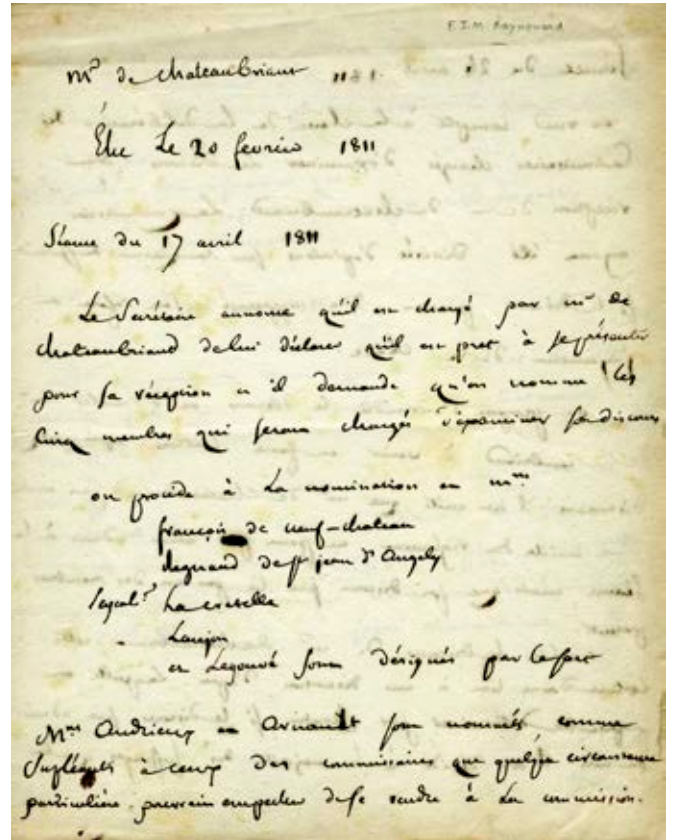 F.J.M. Raynouard
Mr de chateaubriant 1811.
Élu Le 20 fevrier 1811
Séance du 17 avril 1811
Le Secrétaire annonce qu'il est chargé par mr de
chateaubriand de lui déclarer qu'il est pret à se présenter
pour sa réception et il demande qu'on nomme les
cinq membres qui seront chargés d'éxaminer son discours
on procède à La nomination et mrs
françois de neuf-chateau
Regnaud de st jean d'Angely
Lacretelle
Laujon
et Legouvé sont désignés par le sort
Mrs Andrieux et Arnault sont nommés comme
supléants à ceux des commissaires que quelque circonstance
particulière pourrait empecher de se rendre à La commission.